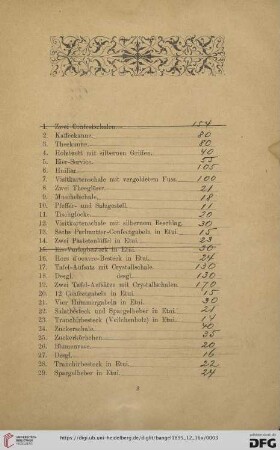 1. Zwei Confectschalen 154
2. Kaffeekanne 80
3. Theekanne 80
4. mit silbernen Griffen 40
5. Bier-Service 55
6. 105
7. Visitkartenschale mit vergoldetem Fuss 100
8. Zwei Theegläser 21
9. Muschelschale 18
10. Pfeffer- und Salzgestell 11
11. Tischglocke 20
12. Visitkartenschale mit silbernem Beschlag 30
13. Sechs Perlmutter-Confectgabeln in Etui 15
14. Zwei in Etui 23
15. in Etui 30
16. Hors d'oeuvre-Besteck in Etui 24
17. Tafel-Aufsatz mit Crystallschale 130
18. Desgl. desgl. 130
19. Zwei Tafel-Aufsätze mit Crystallschalen 170
20. 12 in Etui 15
21. Vier in Etui 30
22. Salatbesteck und Spargelheber in Etui 21
23. Tranchirbesteck (Veilchenholz) in Etui 14
24. Zuckerschale 40
25. Zuckerkörbchen 35
26. Blumenvase 20
27. Desgl. 16
28. Tranchirbesteck in Etui 22
29. Spargelheber in Etui 24